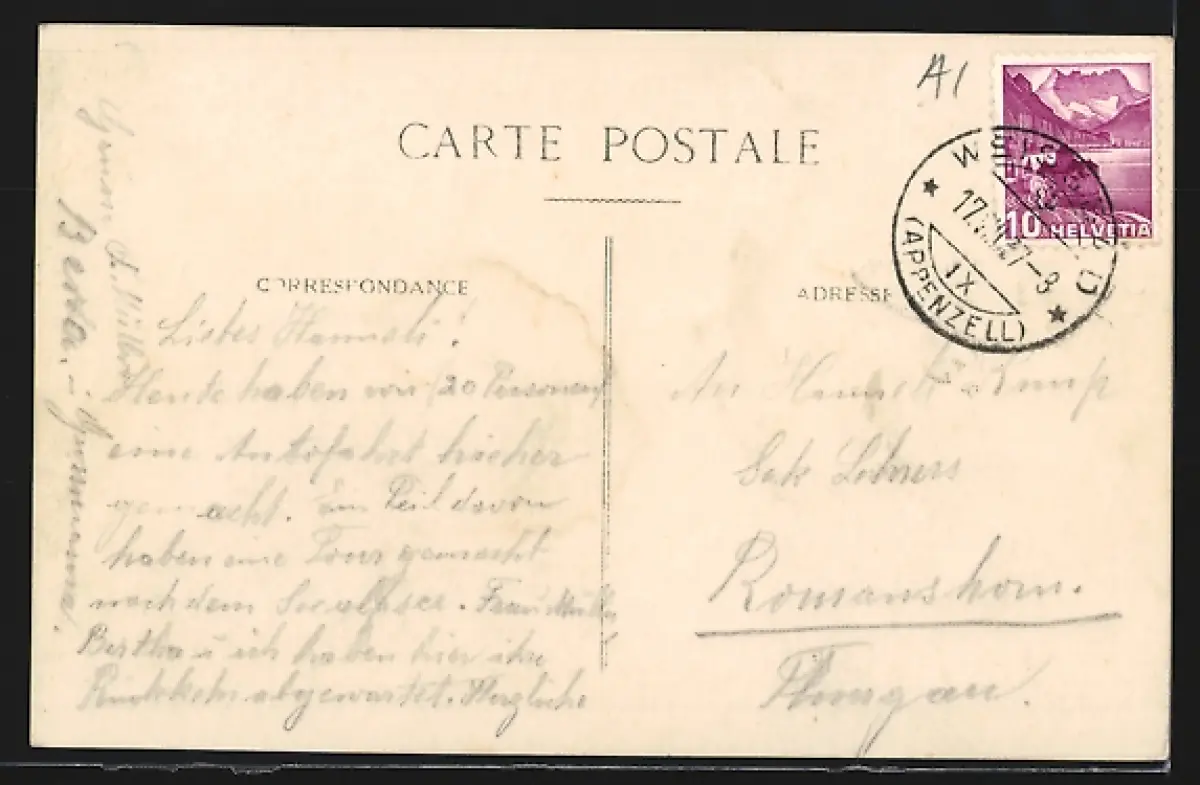 A1
CARTE POSTALE
10 HELVETIA
WEISSBAD
17. 37-8
IX
(APPENZELL)
CORRESPONDANCE
ADRESSE
Liebes Hanneli!
Heute haben wir (20 Personen)
eine Autofahrt hieher
gemacht. Ein Teil davon
haben eine Tour gemacht
nach dem Seealpsee. Frau
Bertha u ich haben hier ihre
Rückkehr abgewartet. Herzliche
Berta.
An
Romanshorn.
Thurgau.